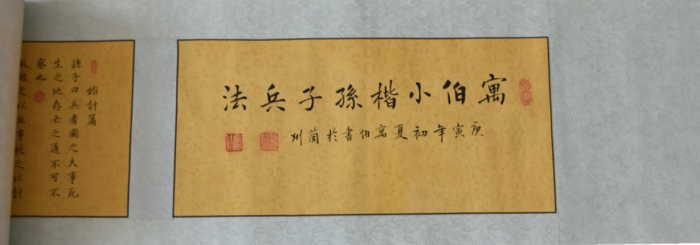 寓伯小楷孫子兵法
庚寅年初夏寓伯書於蘭州
始計篇
孫子曰兵者國之大事死
生之地存亡之道不可不
察也